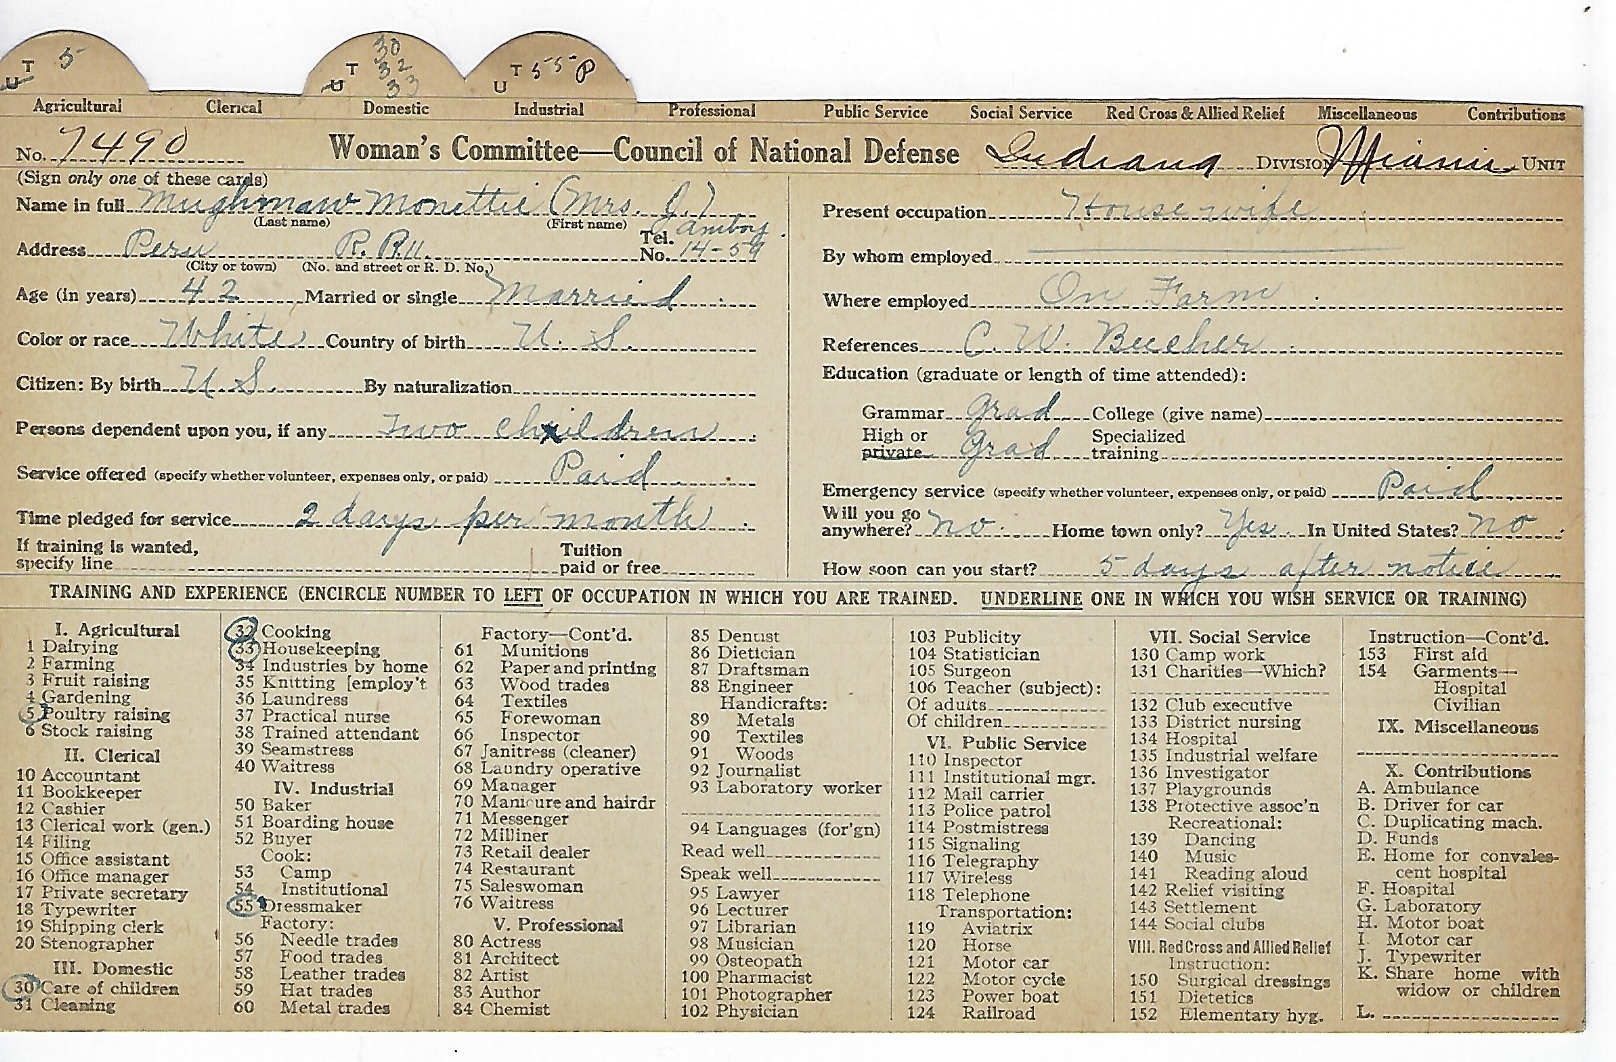 U T 5
U T 30 32 33
U T 55 P
Agricultural Clerical Domestic Industrial Professional Public Service Social Service Red Cross & Allied Relief Miscellaneous Contributions
No. 7490 Woman's Committee—Council of National Defense Indiana DIVISION Miami UNIT
(Sign only one of these cards)
Name in full Mughmaw Monettie (Mrs. J.)
(Last name) (First name)
Address Peru R. R. 11. Tel. No. Amboy 14-59
(City or town) (No. and street or R. D. No.)
Age (in years) 42 Married or single Married
Color or race White Country of birth U. S.
Citizen: By birth U.S. By naturalization
Persons dependent upon you, if any Two children
Service offered (specify whether volunteer, expenses only, or paid) Paid
Time pledged for service 2 days per month
If training is wanted, specify line Tuition paid or free
Present occupation House wife
By whom employed
Where employed On Farm
References C. W. Beecher
Education (graduate or length of time attended):
Grammar Grad College (give name)
High or private Grad Specialized training
Emergency service (specify whether volunteer, expenses only, or paid) Paid
Will you go anywhere? no Home town only? Yes In United States? no
How soon can you start? 5 days after notice
TRAINING AND EXPERIENCE (ENCIRCLE NUMBER TO LEFT OF OCCUPATION IN WHICH YOU ARE TRAINED. UNDERLINE ONE IN WHICH YOU WISH SERVICE OR TRAINING)
I. Agricultural
1 Dairying
2 Farming
3 Fruit raising
4 Gardening
5 Poultry raising
6 Stock raising
II. Clerical
10 Accountant
11 Bookkeeper
12 Cashier
13 Clerical work (gen.)
14 Filing
15 Office assistant
16 Office manager
17 Private secretary
18 Typewriter
19 Shipping clerk
20 Stenographer
III. Domestic
30 Care of children
31 Cleaning
32 Cooking
33 Housekeeping
34 Industries by home
35 Knitting [employ't
36 Laundress
37 Practical nurse
38 Trained attendant
39 Seamstress
40 Waitress
IV. Industrial
50 Baker
51 Boarding house
52 Buyer
Cook:
53 Camp
54 Institutional
55 Dressmaker
Factory:
56 Needle trades
57 Food trades
58 Leather trades
59 Hat trades
60 Metal trades
Factory—Cont'd.
61 Munitions
62 Paper and printing
63 Wood trades
64 Textiles
65 Forewoman
66 Inspector
67 Janitress (cleaner)
68 Laundry operative
69 Manager
70 Manicure and hairdr
71 Messenger
72 Milliner
73 Retail dealer
74 Restaurant
75 Saleswoman
76 Waitress
V. Professional
80 Actress
81 Architect
82 Artist
83 Author
84 Chemist
85 Dentist
86 Dietician
87 Draftsman
88 Engineer
Handicrafts:
89 Metals
90 Textiles
91 Woods
92 Journalist
93 Laboratory worker
94 Languages (for'gn)
Read well
Speak well
95 Lawyer
96 Lecturer
97 Librarian
98 Musician
99 Osteopath
100 Pharmacist
101 Photographer
102 Physician
103 Publicity
104 Statistician
105 Surgeon
106 Teacher (subject):
Of adults
Of children
VI. Public Service
110 Inspector
111 Institutional mgr.
112 Mail carrier
113 Police patrol
114 Postmistress
115 Signaling
116 Telegraphy
117 Wireless
118 Telephone
Transportation:
119 Aviatrix
120 Horse
121 Motor car
122 Motor cycle
123 Power boat
124 Railroad
VII. Social Service
130 Camp work
131 Charities—Which?
132 Club executive
133 District nursing
134 Hospital
135 Industrial welfare
136 Investigator
137 Playgrounds
138 Protective assoc'n
Recreational:
139 Dancing
140 Music
141 Reading aloud
142 Relief visiting
143 Settlement
144 Social clubs
VIII. Red Cross and Allied Relief
Instruction:
150 Surgical dressings
151 Dietetics
152 Elementary hyg.
Instruction—Cont'd.
153 First aid
154 Garments—
Hospital
Civilian
IX. Miscellaneous
X. Contributions
A. Ambulance
B. Driver for car
C. Duplicating mach.
D. Funds
E. Home for convales-
cent hospital
F. Hospital
G. Laboratory
H. Motor boat
I. Motor car
J. Typewriter
K. Share home with
widow or children
L.